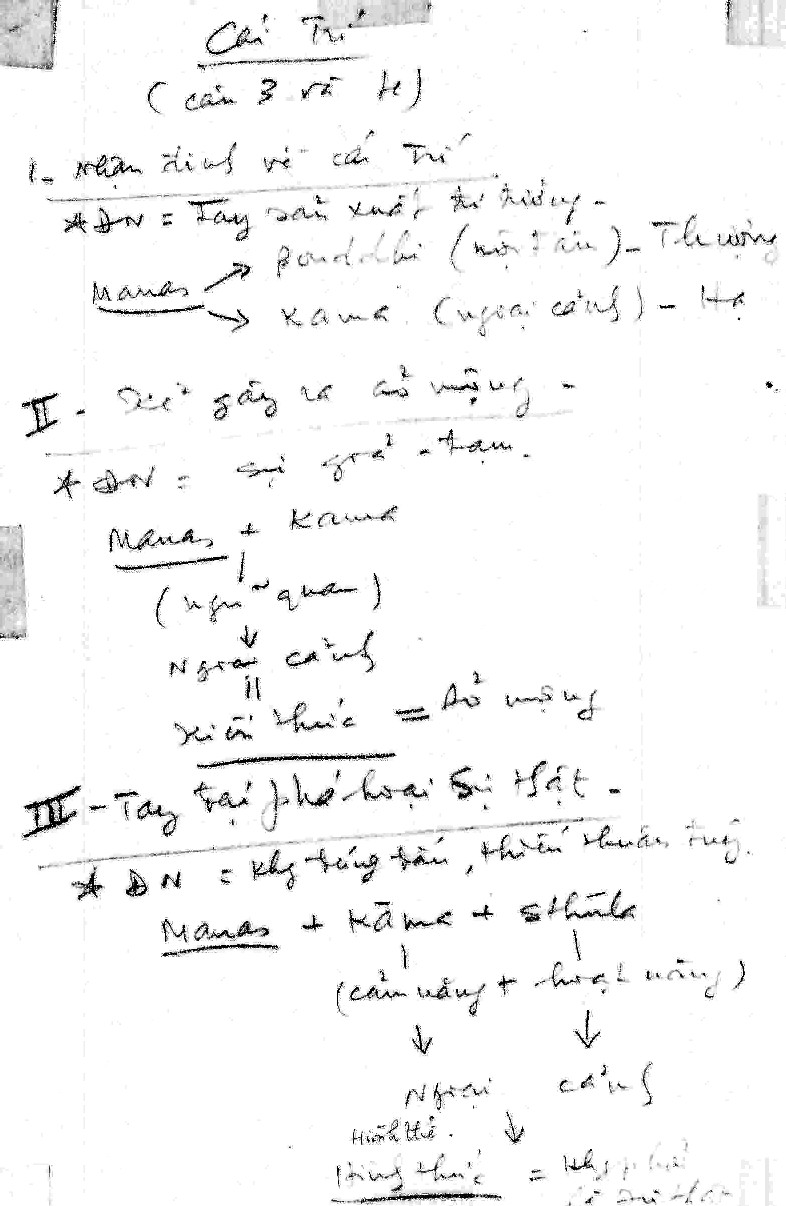 Cái Trí
(câu 3 và 4)
I- Nhận định về cái Trí
* ĐN = Tay sản xuất tư tưởng -
Manas → Bouddhi (nội tâm) - Thượng
→ Kama (ngoại cảnh) - Hạ
II - gây ra ảo mộng -
* ĐN = sự giả - tạm.
Manas + Kama
(ngũ quan)
↓
Ngoại cảnh
=
Kiến thức = Ảo mộng
III - Tay đại phá hoại Sự thật -
* ĐN = Khg đúng đắn, thiếu thuần tuý.
Manas + Kāma + Sthūla
(cảm năng + hoạt năng)
↓ ↓
Ngoại cảnh
Hình thể. ↓
Hình thức = Khg phải